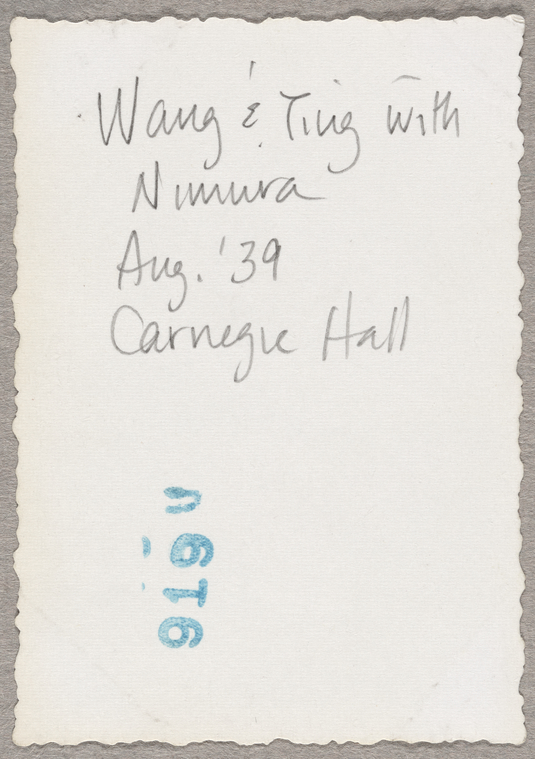 Wang & Ting with
Nimura
Aug. '39
Carnegie Hall
919